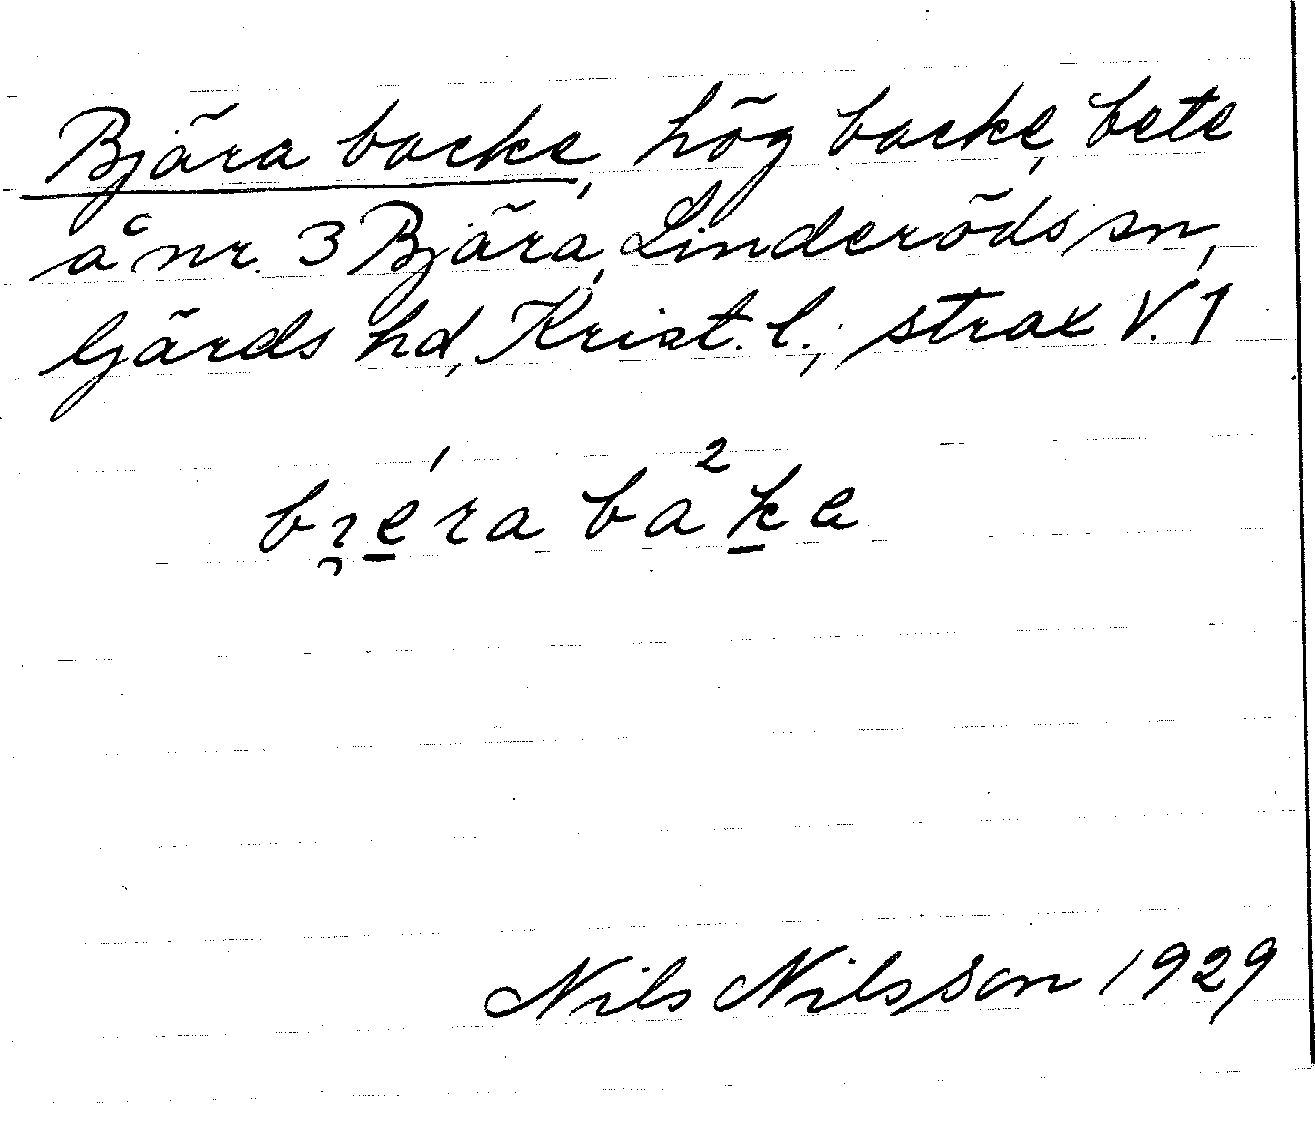 Bjära backe, hög backe, bete
å nr. 3 Bjära, Linderöds sn,
Gärds hd, Krist. l.; strax V. 1
Nils Nilsson 1929